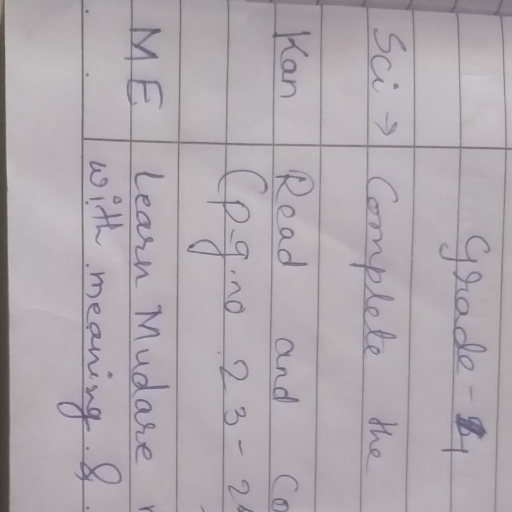 Grade - 4
Sci → Complete the
Kan Read and Co
(p-g.no 23-
M E Learn Mudare
with meaning &